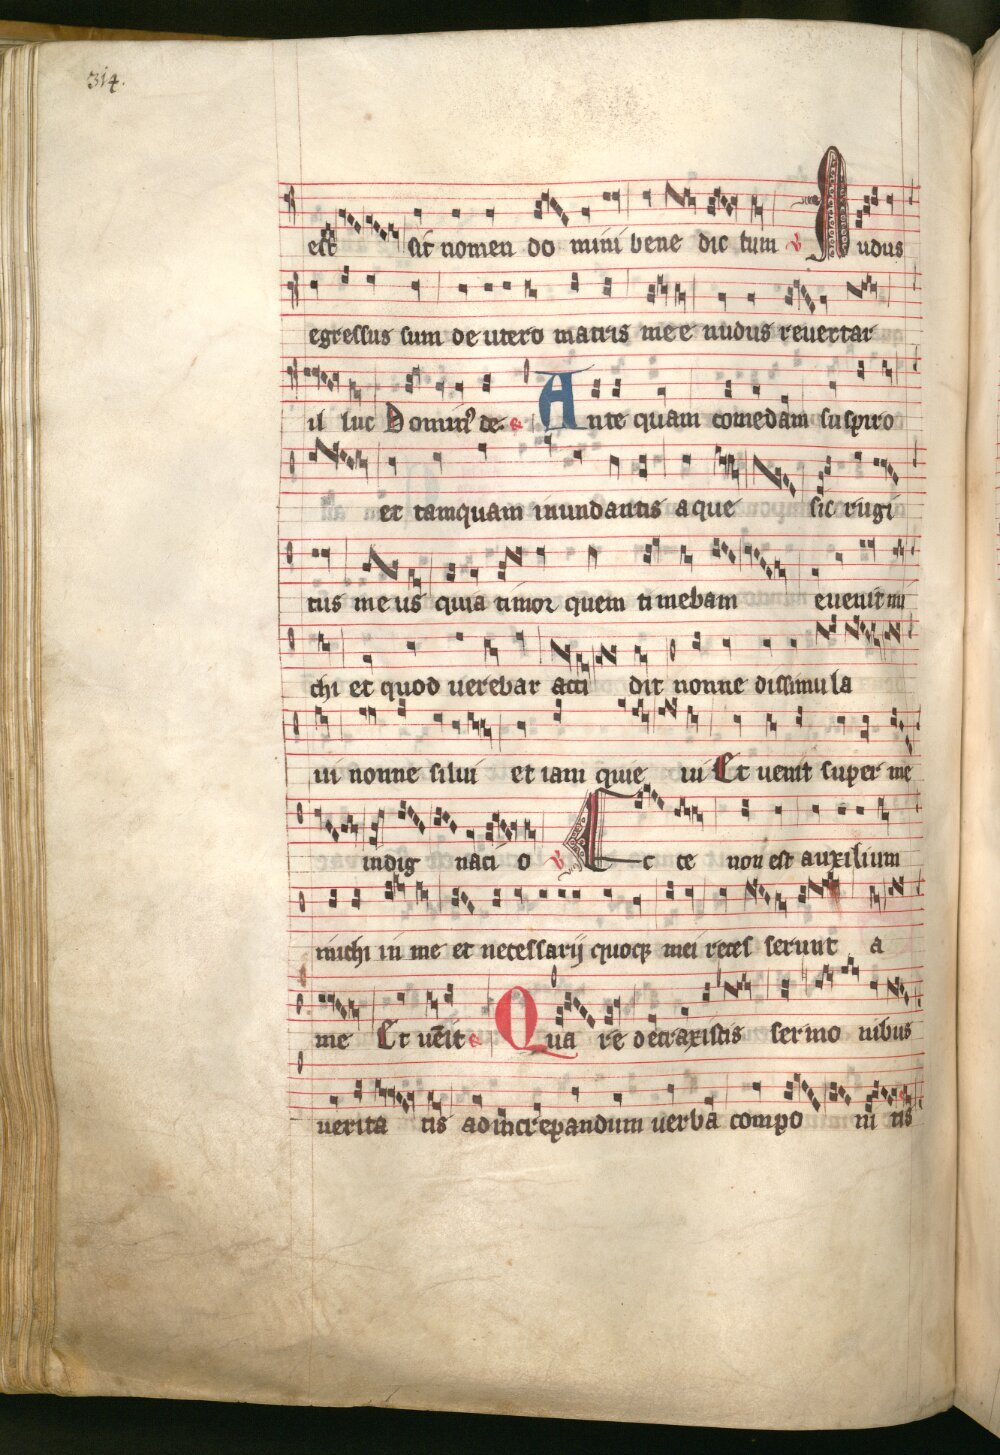 314.
est sit nomen do mini bene dic tum v Nudus
egressus sum de utero matris mee nudus reuertar
il luc Domin9 de. R Ante quam comedam suspiro
et tamquam inundantis aque sic rugi
tus me us quia timor quem ti mebam euenit mi
chi et quod uerebar acci dit nonne dissimu la
ui nonne silui et iam quie ui Et uenit super me
indig naci o v Ec ce non est auxilium
michi in me et necessarij quoqz mei reces serunt a
me Et uēit R Qua re detraxistis sermo nibus
uerita tis ad increpandum uerba compo ni tis